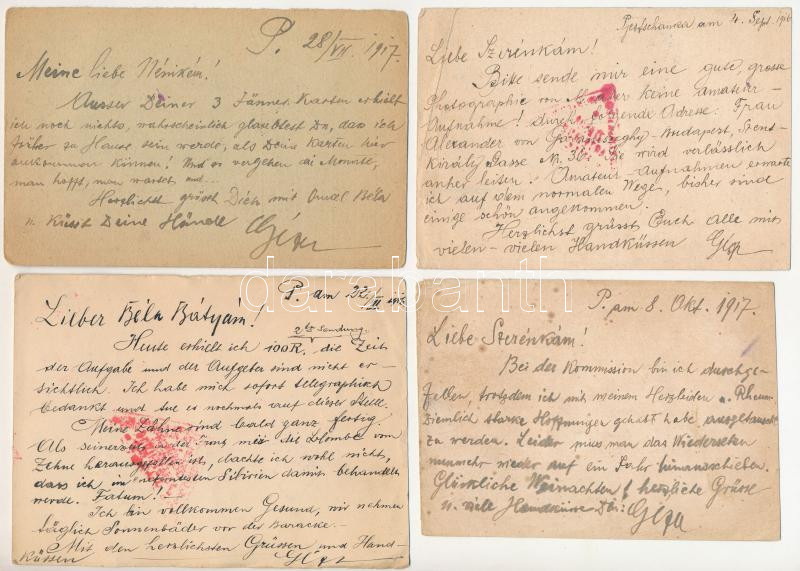 P. 28/VII. 1917.
Meine liebe Nénikém!
Ausser Deiner 3 Jänner Karten erhielt
ich noch nichts, wahrscheinlich glaubtest Du, dass ich
früher zu Hause sein werde, als Deine Karten hier
ankommen können! Und so vergehen die Monate,
man hofft, man wartet und...
Herzlichst grüsst Dich mit Onkel Béla
u. küsst Deine Hände Géza
Pjestschanka am 4. Sept. 1916
Liebe Szerénkám!
Bitte sende mir eine gute, grosse
Photographie von keine Amateur-
Aufnahme! durch folgende Adresse: Frau
Alexander von Budapest, Szent-
Király Gasse Nr. 36. Sie wird verlässlich
anher leiten. Amateur-Aufnahmen erwarte
ich auf dem normalen Wege, bisher sind
einige schön angekommen.
Herzlichst grüsst Euch Alle mit
vielen - vielen Handküssen Géza
P. am 22/VI
Lieber Béla Bátyám!
2te Sendung.
Heute erhielt ich 100 R. die Zeit
der Aufgabe und der Aufgeber sind nicht er-
sichtlich. Ich habe mich sofort telegraphisch
bedankt und tue es nochmals auf dieser Stelle.
Meine Zähne sind bald ganz fertig.
Als seinerzeit in der mir die Plombe vom
Zahne herausgefallen ist, dachte ich wohl nicht,
dass ich im Sibirien damit behandelt
werde. Fatum! -
Ich bin vollkommen Gesund, wir nehmen
täglich Sonnenbäder vor der Baracke. -
Mit den herzlichsten Grüssen und Hand-
küssen Géza
P. am 8. Okt. 1917.
Liebe Szerénkám!
Bei der Kommission bin ich durchge-
fallen, trotzdem ich mit meinem Herzleiden u. Rheum.
ziemlich starke Hoffnungen gehabt habe ausgetauscht
zu werden. Leider muss man das Wiedersehen
nunmehr wieder auf ein Jahr hinausschieben.
Glückliche Weinachten! herzliche Grüsse
u. viele Handküsse Géza
darabanth